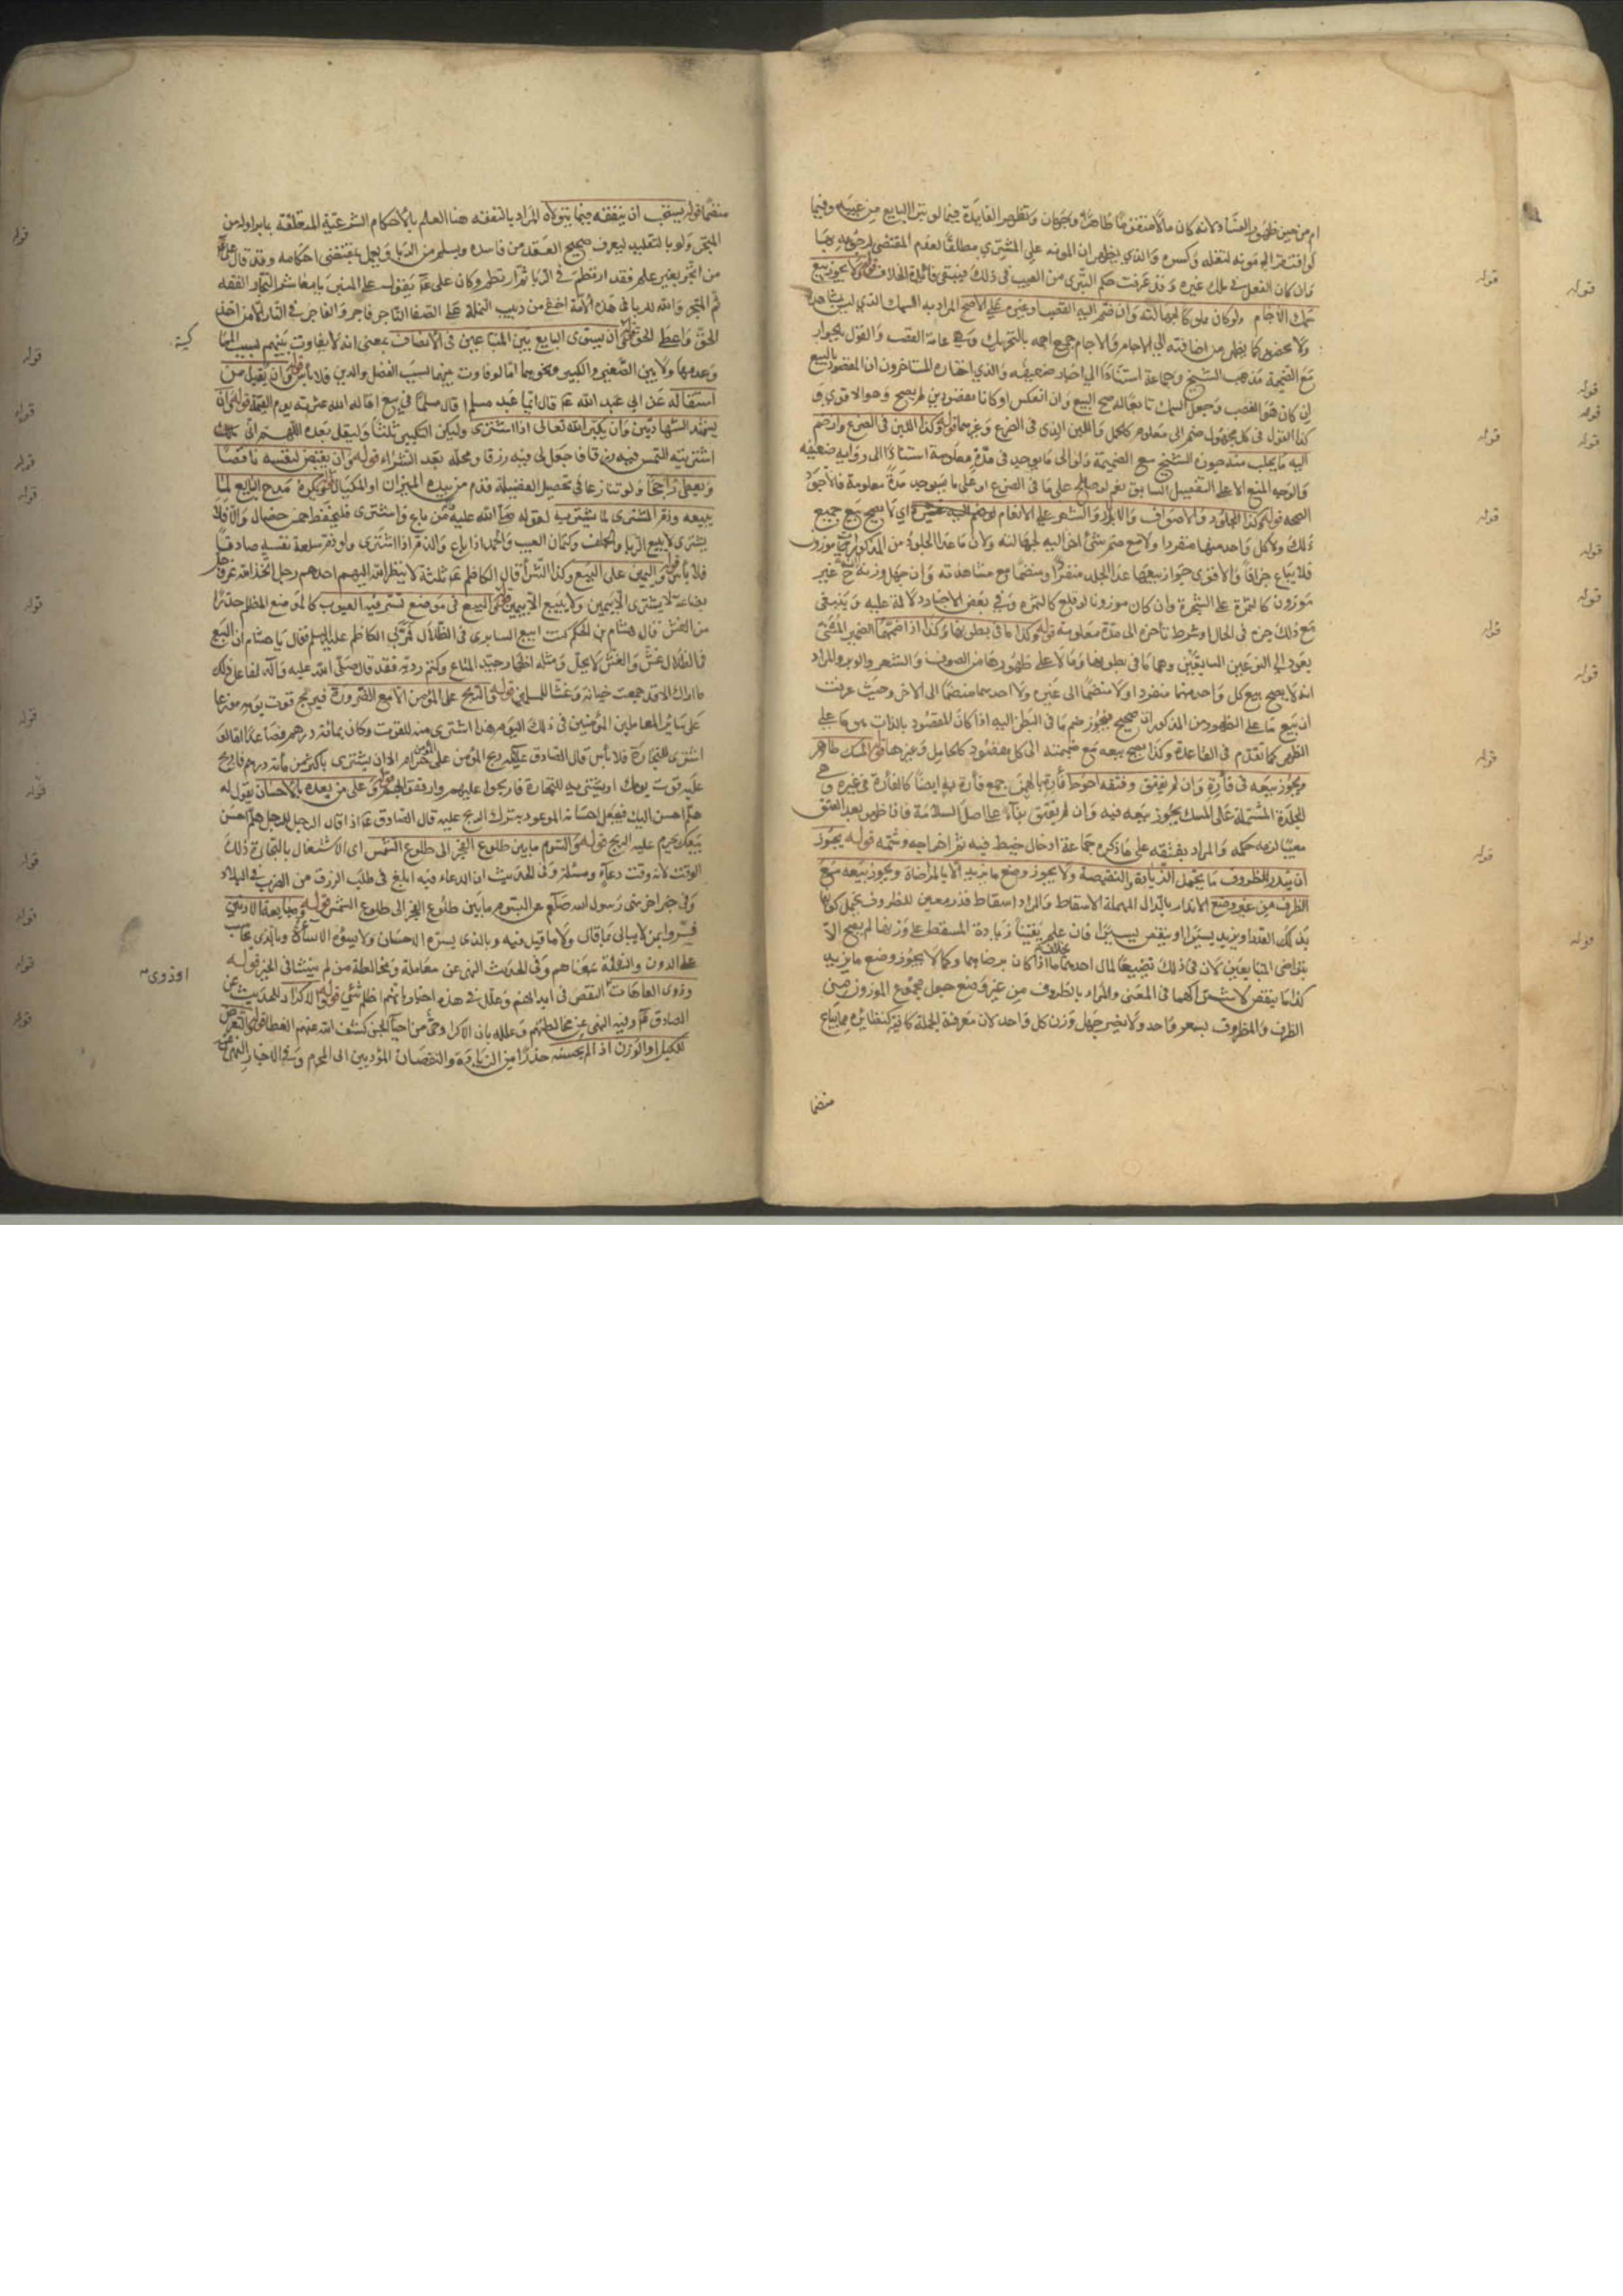 ام من حين ظهور الفساد لانه كان مالا متقوما ظاهرا وجهان وتظهر الفايدة فيما لو تبرا البايع من عيبه وفيما
لو افتقر الى مؤنة لنقله وكسره والذي يظهر ان المونه على المشتري مطلقا لعدم المقتضى لرجوعه بها
وان كان الفعل في ملك غيره وقد عرفت حكم التبرى من العيب في ذلك فينبغى فائدة الخلاف قوله ولا يجوز بيع
سمك الاجام ولو كان مملوكا لجهالته وان ضم اليه القصب او غيره على الاصح المراد به السمك الذي ليس بمشاهد
ولا محصور كما يظهر من اضافته الى الاجام والاجام جمع اجمه بالتحريك وهي عامة القصب والقول بالجواز
مع الضميمة مذهب الشيخ وجماعة استنادا الى اخبار ضعيفه والذي اختاره المتاخرون ان المقصود بالبيع
ان كان هو القصب وجعل السمك تابعا له صح البيع وان انعكس او كانا مقصودين لم يصح وهو الاقوى وق
كذا القول في كل مجهول ضم الى معلوم كالحمل واللبن الذي في الضرع وغيرهما قوله وكذا اللبن في الضرع وان ضم
اليه ما يحلب منه جوزه الشيخ مع الضميمة ولو الى ما يوجد في مدة معلومة استنادا الى رواية ضعيفه
والوجه المنع الا على التفصيل السابق نعم لو صالح على ما في الضرع او على ما سيوجد مدة معلومة فالاجود
الصحه قوله وكذا الجلود والاصواف والاوبار والشعر على الانعام ولو ضم اليه غيره اي لا يصح بيع جميع
ذلك ولا كل واحد منها منفردا ولا مع ضم شئ اخر اليه لجهالته ولان ما عدا الجلود من المذكورات موزون
فلا يباع جزافا والاقوى جواز بيعها عدا الجلد منفردا ومنضما مع مشاهدته وان جهل وزنه لانه ح غير
موزون كالثمرة على الشجرة وان كان موزونا لو قلع كالثمره وفي بعض الاخبار دلالة عليه وينبغى
مع ذلك جزه في الحال او شرط تاخره الى مدة معلومة قوله وكذا ما في بطونها وكذا اذا ضمهما الضمير المثنى
يعود الى النوعين السابقين وهما ما في بطونها وما لا على ظهورها من الصوف والشعر والوبر والمراد
انه لا يصح بيع كل واحد منهما منفردا ولا منضما الى غيره ولا احدهما منضما الى الاخر وحيث عرفت
ان بيع ما على الظهور من المذكورات صحيح فيجوز ضم ما في البطن اليه اذا كان المقصود بالذات هو ما على
الظهر كما تقدم في القاعدة وكذا يصح بيعه مع ضميمته الى كل مقصود كالحامل وغيرها قوله المسك طاهر
ويجوز بيعه في فأرة وان لم يفتق وفتقه احوط فأرة بالهمز جمع فأرة به ايضا كالفأرة في غيره وهي
الجلدة المشتملة على المسك يجوز بيعه فيه وان لم يفتق بناء على اصل السلامة فان ظهر بعد الفتق
معيبا لزمه حكمه والمراد بفتقه على ما ذكره جماعة ادخال خيط فيه ثم اخراجه وشمه قوله يجوز
ان يندر للظروف ما يحتمل الزيادة والنقيصة ولا يجوز وضع ما يزيد الا بالمراضاة ويجوز بيعه مع
الظرف من غير وضع الاندار بالدال المهملة الاسقاط والمراد اسقاط قدر معين للظروف يحتمل كونها
بذلك القدر او يزيد يسيرا او ينقص يسيرا فان علم يقينا زيادة المسقط على وزنها لم يصح الا
بتراضى المتبايعين لان في ذلك تضييعا لمال احدهما بخلافه اذا كان برضاهما وكما لا يجوز وضع ما يزيد
كذا ما ينقص لاشتراكهما في المعنى والمراد بالظروف من غير وضع جعل مجموع الموزون من
الظرف والمظروف بسعر واحد ولا يضر جهل وزن كل واحد لان معرفة الجملة كافية كنظائره مما يباع
منضما
قوله
قوله
قوله
قوله
قوله
قوله
قوله
قوله
قوله
قوله
قوله
قوله
قوله
قوله
منضما قوله يستحب ان يتفقه فيما يتولاه المراد بالتفقه هنا العلم بالاحكام الشرعية المتعلقة بما يراوله من
المتجر ولو بالتقليد ليعرف صحيح العقد من فاسده ويسلم من الربا ويعمل بمقتضى احكامه وقد قال على ع
من اتجر بغير علم فقد ارتطم في الربا ثم ارتطم وكان على ع يقول على المنبر يا معاشر التجار الفقه
ثم المتجر والله للربا في هذه الامة اخفى من دبيب النملة على الصفا التاجر فاجر والفاجر في النار الا من اخذ
الحق واعطى الحق قوله ان يسوى البايع بين المتبايعين في الانصاف بمعنى انه لا يفاوت بينهم بسبب المما
وعدمها ولا بين الصغير والكبير ونحوهما اما لو فاوت بينهما لسبب الفضل والدين فلا باس قوله وان يقيل من
استقاله عن ابى عبد الله ع قال ايما عبد مسلم اقال مسلما في بيع اقاله الله عثرته يوم القيمة قوله وان
يتشهد الشهادتين وان يكبر الله تعالى اذا اشترى وليكن التكبير ثلثا وليقل بعده اللهم انى
اشتريته التمس فيه رزقا فاجعل لى فيه رزقا ومحله بعد الشراء قوله وان يقبض لنفسه ناقصا
ويعطى راجحا ولو تنازعا في تحصيل الفضيلة قدم من بيده الميزان او المكيال قوله ويكره مدح البايع لما
يبيعه وذم المشترى لما يشتريه لقوله صلى الله عليه من باع واشترى فليحفظ خمس خصال والا فلا
يشترى لا يبيع الربا والحلف وكتمان العيب والحمد اذا باع والذم اذا اشترى ولو ذم سلعة نفسه صادقا
فلا باس قوله واليمين على البيع وكذا الشرأ قال الكاظم ع ثلثة لا ينظر الله اليهم احدهم رجل اتخذ الله عز وجل
بضاعة لا يشترى الا بيمين ولا يبيع الا بيمين قوله والبيع في موضع تستر فيه العيوب كالموضع المظلم حذرا
من الغش قال هشام بن الحكم كنت ابيع السابرى في الظلال فمر بى الكاظم عليه السلم فقال يا هشام ان البيع
في الظلال غش والغش لا يحل ومثله اظهار جيد المتاع وكتم رديه فقد قال صلى الله عليه وآله لفاعل ذلك
ما اراك الا قد جمعت خيانة وغشا للمسلمين قوله والربح على المؤمن الا مع الضرورة فيربح قوت يومه موزعا
على سائر المعاملين المؤمنين في ذلك اليوم هذا اذا اشترى منه للقوت وكان بمائة درهم فصاعدا اما لو
اشترى للتجارة فلا بأس قال الصادق ع ربح المؤمن على المؤمن حرام الا ان يشترى باكثر من مأته درهم فاربح
عليه قوت يومك او يشتريه للتجارة فاربحوا عليهم وارفقوا بهم قوله وعلى من يعده بالاحسان بقوله له
هلم احسن اليك فيجعل احسانه الموعود به ترك الربح عليه قال الصادق ع اذا قال الرجل للرجل هلم احسن
بيعك يحرم عليه الربح قوله والسوم ما بين طلوع الفجر الى طلوع الشمس اى الاشتغال بالتجارة ذلك
الوقت لانه وقت دعاء ومسئلة وفي الحديث ان الدعاء فيه ابلغ في طلب الرزق من الضرب في البلاد
وفي خبر اخر نهى رسول الله صلع عن السوم ما بين طلوع الفجر الى طلوع الشمس قوله ومبايعة الادنين
فسروا بمن لا يبالى ما قال ولا ما قيل فيه وبالذى يسره الاحسان ولا يسوؤه الاساءة وبالذى يحاسب
على الدون والدنية بمعناهم وفي الحديث النهى عن معاملة ومخالطة من لم ينشا في الخير قوله
وذوى العاهات النقص في ابدانهم وعلل في هذه اخبار بانهم اظلم شئ قوله والاكراد للحديث عن
الصادق ع وفيه النهى عن مخالطتهم وعلله بان الاكراد حى من احياء الجن كشف الله عنهم الغطا قوله والتعرض
للكيل او الوزن اذا لم يحسنه حذرا من الزيادة والنقصان المؤديين الى المحرم وفي الاخبار النهى عن
قوله
قوله
قوله
قوله
قوله
قوله
قوله
قوله
قوله
قوله
قوله
قوله